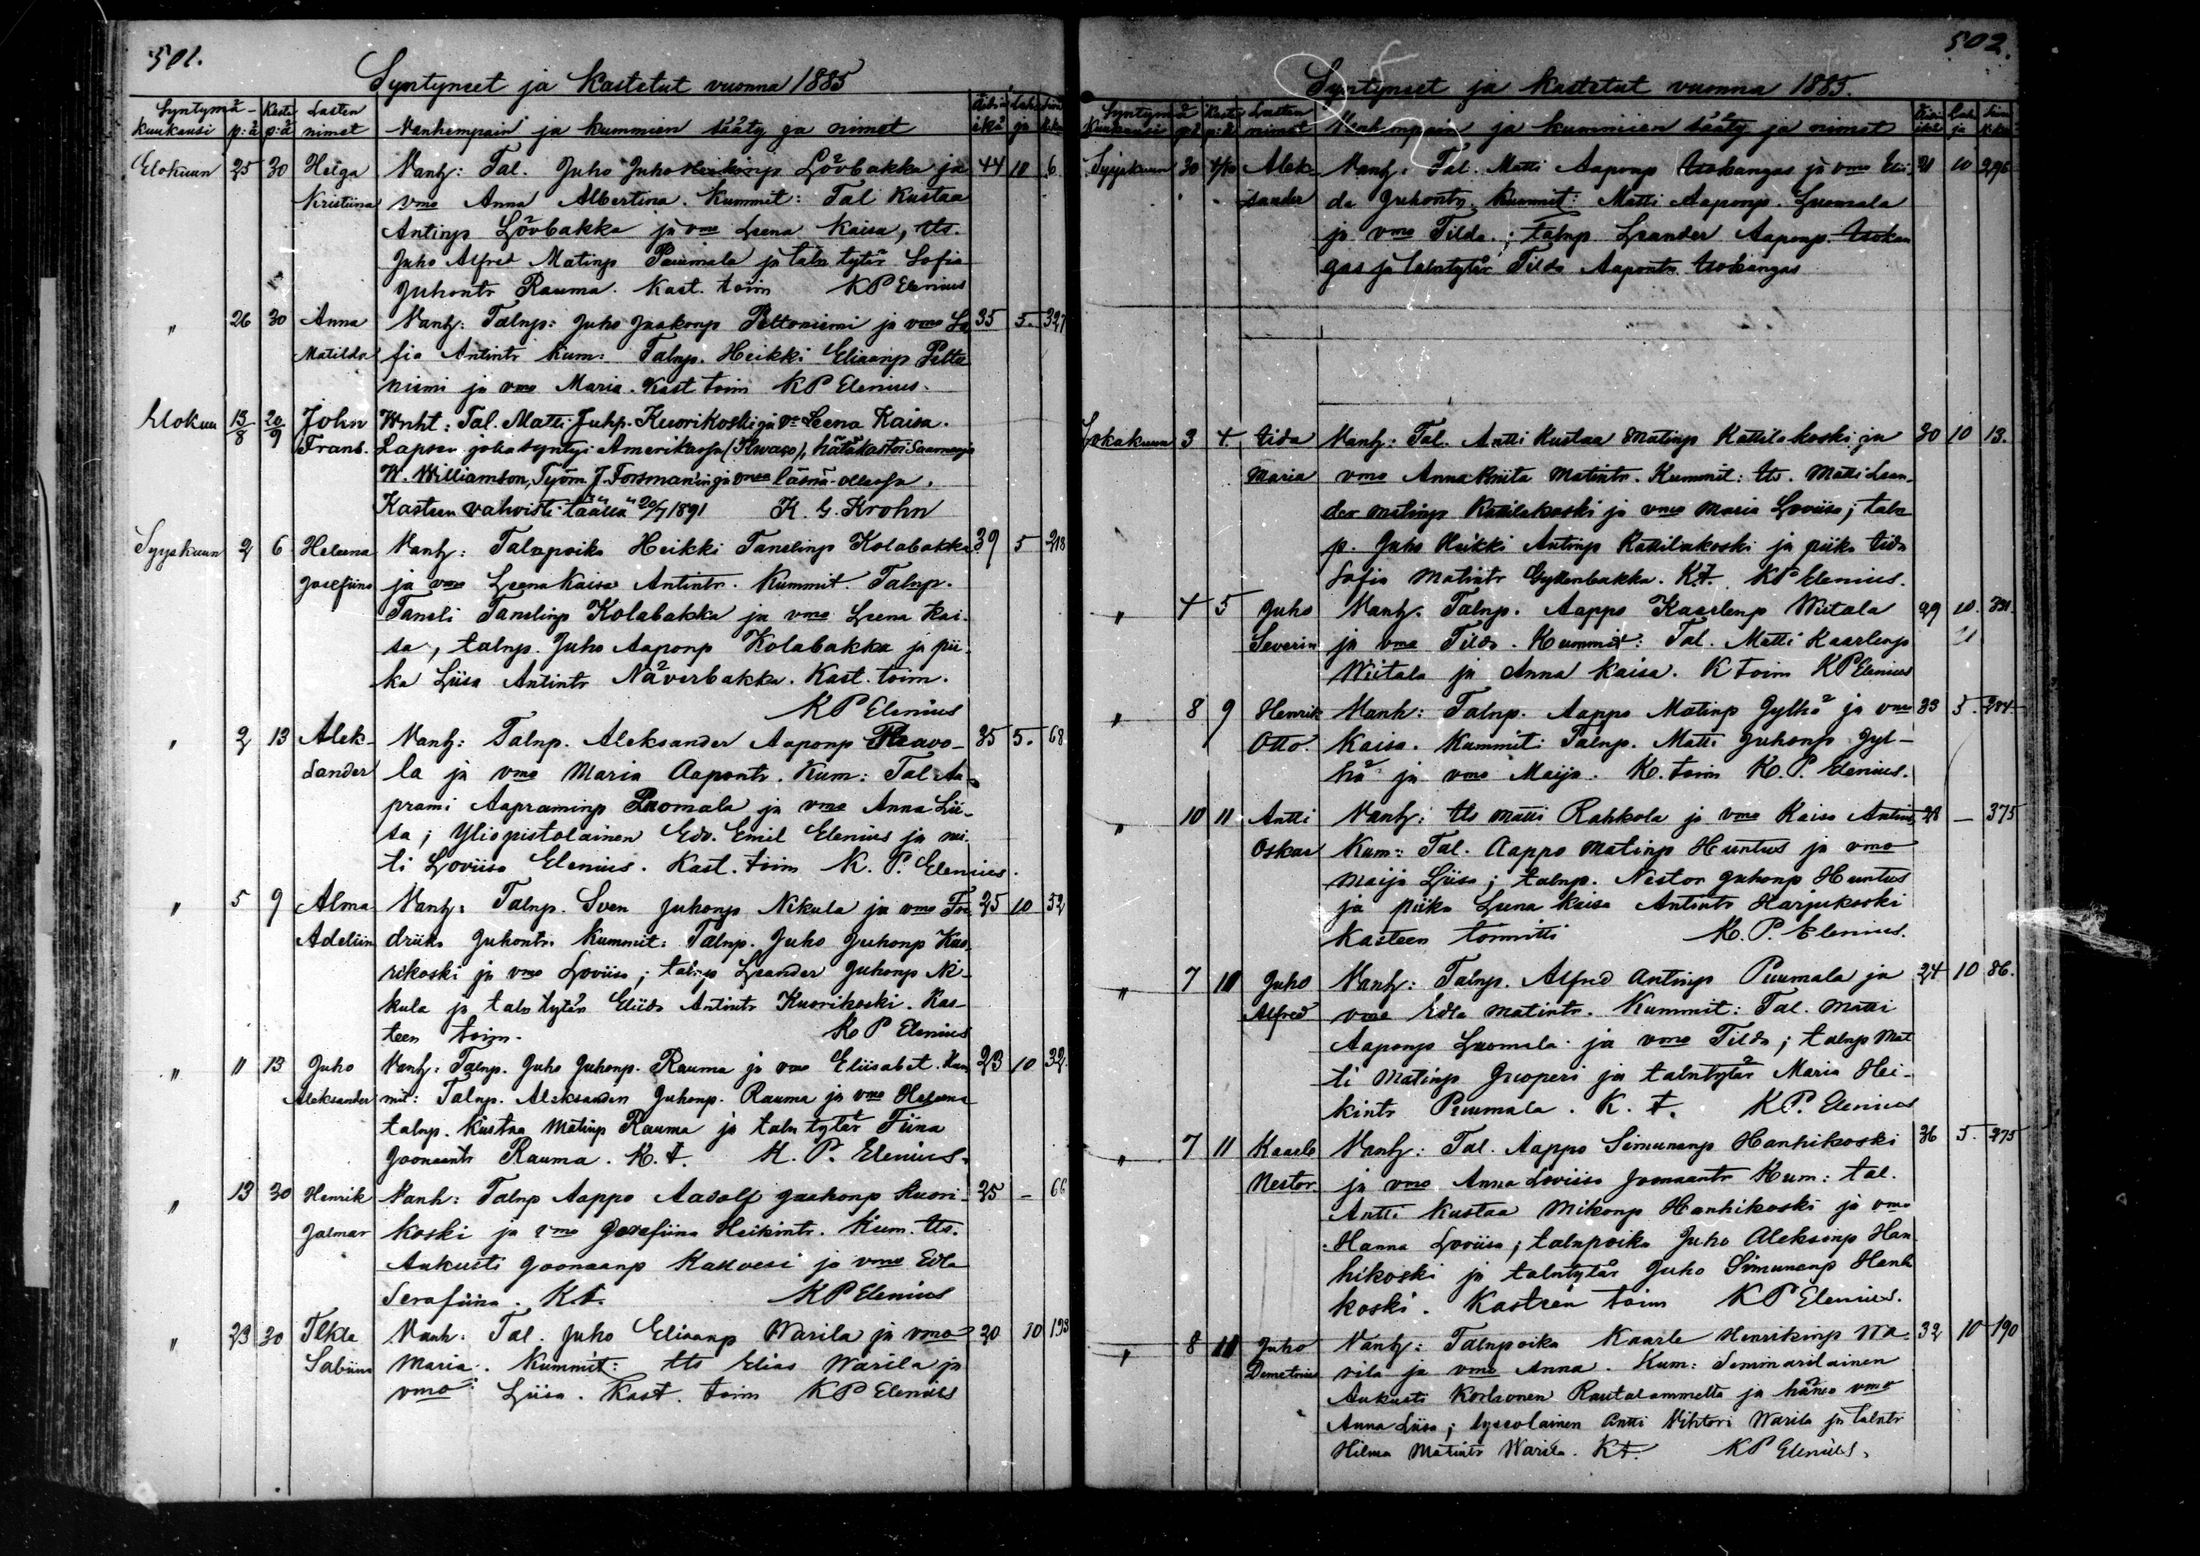 501.
Syntyneet ja Kastetut vuonna 1885
Syntymä- Kaste Lasten
kuukausi p:ä p:ä nimet Vanhempain ja kummien sääty ja nimet ikä
Elokuun 25 30 Helga Vanh: Tal. Juho Juho Heikinp Lövbakka ja 44 10 6
Kristiina vmo Anna Albertina. Kummit: Tal Kustaa
Antinp Lövbakka ja vmo Leena Kaisa, tts.
Juho Alfred Matinp Puumala ja taln tytär Sofia
Juhontr Rauma. Kast. toim KP Elenius
" 26 30 Anna Vanh: Talnp: Juho Jaakonp Peltoniemi ja vmo So 35 5. 327
Matilda fia Antintr Kum: Talnp. Heikki Eliaanp Pelto
niemi ja vmo Maria. Kast toim KP Elenius.
Elokuu 13/8 20/9 John Wnht: Tal. Matti Juhp. Kuorikoski ja vo Leena Kaisa.
Frans. Lapsen, joka syntyi Amerikassa, hätäkastoi Saarnaaja
W. Williamson, Työm. J. Forsmanin ja vmon läsnä-ollessa.
Kasteen vahvisti täällä 20/9 1891 K. G. Krohn
Syyskuun 2 6 Heleena Vanh: Talnpoika Heikki Tanelinp Kolabakka 39 5 218
Josefiina ja vmo Leena Kaisa Antintr. Kummit. Talnp.
Taneli Tanelinp Kolabakka ja vmo Leena Kai-
sa, talnp. Juho Aaponp Kolabakka ja pii-
ka Liisa Antintr Näverbakka. Kast. toim.
KP Elenius
" 2 13 Alek- Vanh: Talnp. Aleksander Aaponp 35 5. 68
sander la ja vmo Maria Aapontr. Kum: Tal. Aa-
prami Aapraminp Luomala ja vmo Anna Lii-
sa; Yliopistolainen Edv. Emil Elenius ja nei-
ti Loviisa Elenius. Kast. toim K. P. Elenius.
" 5 9 Alma Vanh: Talnp. Sven Juhonp Nikula ja vmo Fre 25 10 52
Adeliin driika Juhontr. Kummit: Talnp. Juho Juhonp Kuo
rikoski ja vmo Loviisa; talnp Leander Juhonp Ni-
kula ja taln tytär Eliida Antintr Kuorikoski. Kas-
teen toim. KP Elenius
" 11 13 Juho Vanh: Talnp. Juho Juhonp. Rauma ja vmo Eliisabet. Kum 23 10 32
Aleksander mit: Talnp. Aleksander Juhonp. Rauma ja vmo Heleena
talnp. Kustaa Matinp Rauma ja taln tytär Fiina
Joonaantr Rauma. K. t. K. P. Elenius.
" 13 30 Henrik Vanh: Talnp Aappo Aadolf Jaakonp Kuori- 25 - 66
Jalmar koski ja vmo Josefiina Heikintr. Kum. tts.
Aukusti Joonaanp Kallvesi ja vmo Edla
Serafiina. K.t. KP Elenius
" 23 30 Tekla Vanh: Tal. Juho Eliaanp Warila ja vmo 20 10 193
Sabiina Maria. Kummit: tts Elias Warila ja
vmo Liisa. Kast. toim KP Elenius
502.
Syntyneet ja kastetut vuonna 1885.
Syntymä Kaste Lasten
Kuukausi p:ä p:ä nimet Vanhempain ja kummien sääty ja nimet ikä
Syyskuun 30 4/10 Alek- Vanh: Tal. Matti Aaponp Isokangas ja vmo Elii 21 10 296
sander da Juhontr. Kummit: Matti Aaponp. Luomala
ja vmo Tilda; talnp Leander Aaponp. Isokan
gas ja talntytär Tilda Aapontr. Isokangas
Lokakuun 3 4. Iida Vanh: Tal. Antti Kustaa Matinp Kattilakoski ja 30 10 13.
Maria vmo Anna Briita Matintr. Kummit: tts. Matti Lean-
der Matinp Kattilakoski ja vmo Maria Loviisa; taln
p. Juho Heikki Antinp Kattilakoski ja piika Iida
Sofia Matintr Gyllenbakka. K.t. KP Elenius.
" 4 5 Juho Vanh. Talnp. Aappo Kaarlenp Wiitala 29 10. 331.
Severin ja vmo Tilda. Kummit: Tal. Matti Kaarlenp
Wiitala ja Anna Kaisa. K toim KP Elenius
" 8 9 Henrik Vanh: Talnp. Aappo Matinp Jylhä ja vmo 33 5. 284
Otto. Kaisa. Kummit: Talnp. Matti Juhonp Jyl-
hä ja vmo Maija. K. toim K. P. Elenius.
" 10 11 Antti Vanh: tts Matti Rahkola ja vmo Kaisa Antint 28 - 375
Oskar Kum: Tal. Aappo Matinp Huntus ja vmo
Maija Liisa; talnp. Nestor Juhonp Huntus
ja piika Leena Kaisa Antintr Harjukoski
Kasteen toimitti K. P. Elenius.
" 7 11 Juho Vanh: Talnp. Alfred Antinp Puumala ja 24 10 86.
Alfred vmo Edla Matintr. Kummit: Tal. Matti
Aaponp Luomala ja vmo Tilda; talnp Mat
ti Matinp Juoperi ja talntytär Maria Hei-
kintr Puumala. K. t. KP. Elenius
" 7 11 Kaarlo Vanh: Tal. Aappo Simunanp Hanhikoski 36 5. 275
Nestor. ja vmo Anna Loviisa Joonaantr Kum: tal.
Antti Kustaa Mikonp Hanhikoski ja vmo
Hanna Loviisa; talnpoika Juho Aleksinp Han
hikoski ja talntytär Juho Simunanp Hanh
koski. Kasteen toim KP Elenius.
" 8 11 Juho Vanh: Talnpoika Kaarle Henrikinp Wa 32 10 190
Demetrius rila ja vmo Anna. Kum: Seminarilainen
Aukusti Korhonen Rautalammelta ja hänen vmo
Anna Liisa; lyseolainen Antti Vihtori Warila ja talntr
Hilma Matintr Warila. K t. KP Elenius.